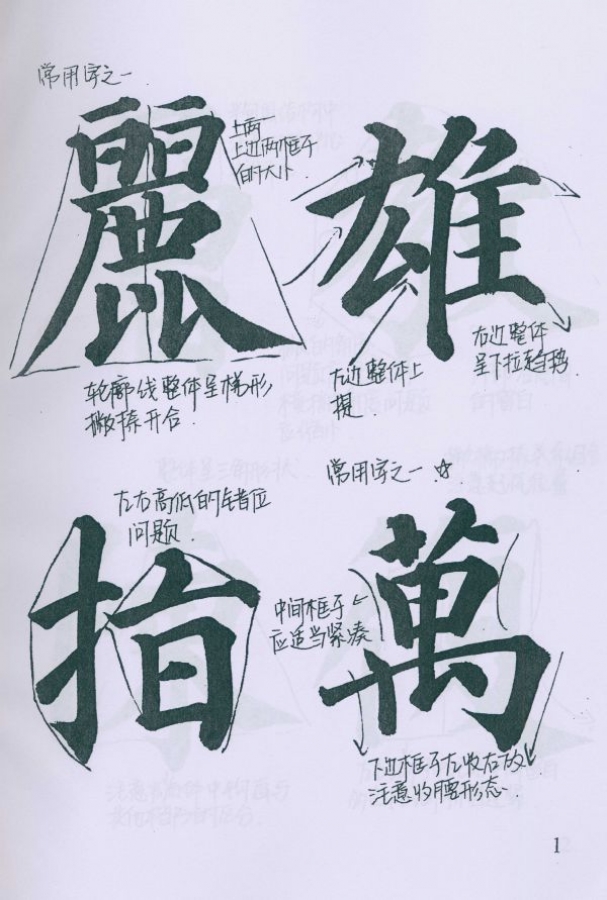 常用字之一
麗
上面
上边两框子
的大小
轮廓线整体呈梯形
撇捺开合.
雄
左边整体上
提.
右边整体
呈下拉趋势.
左右高低的错位
问题.
指
常用字之一.☆
萬
中间框子
应适当紧凑
下边框子左收右放
注意收腰形态.
1